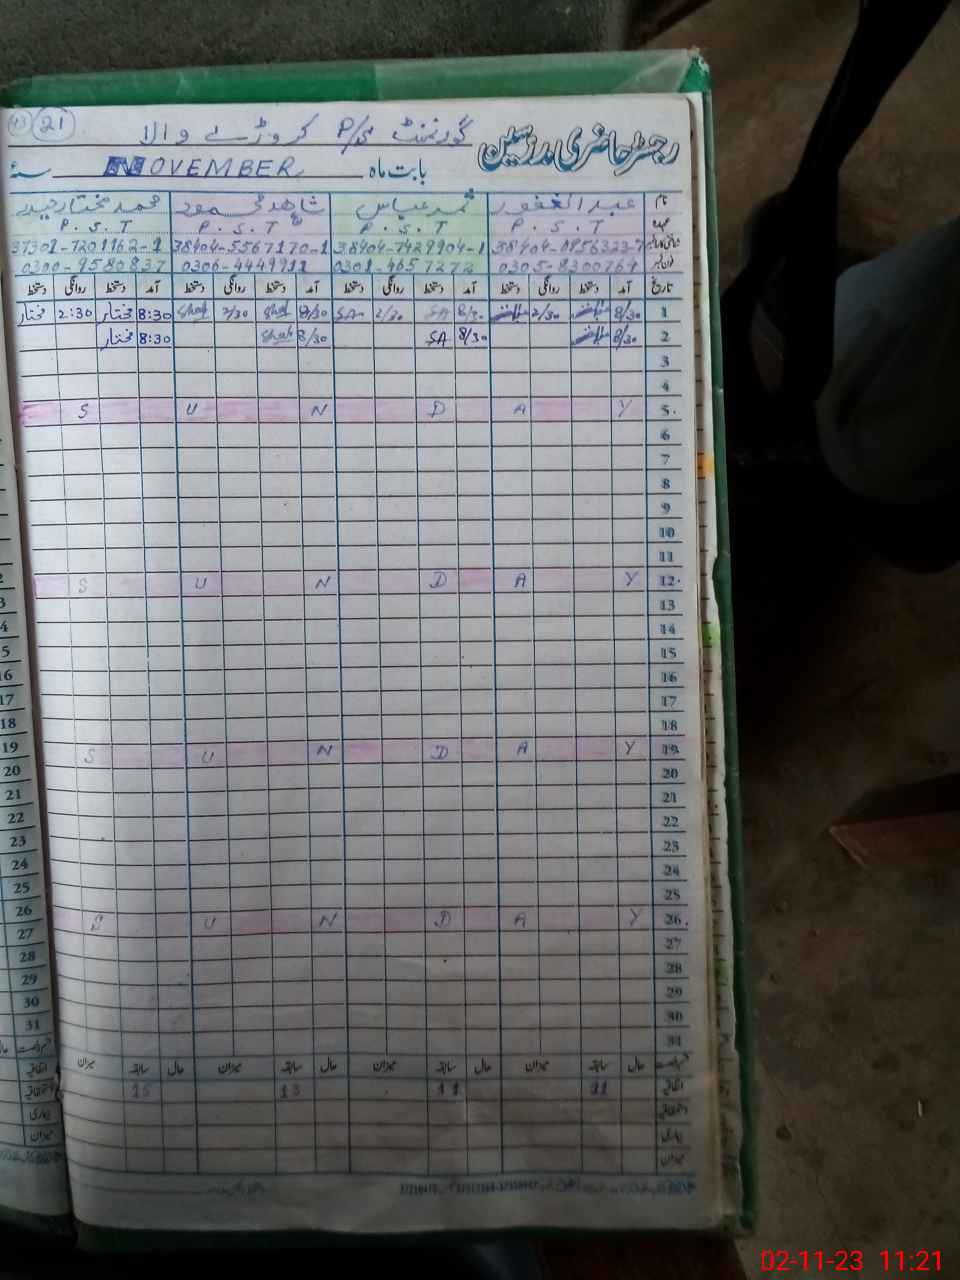 21 43
رجسٹر حاضری مدرسین گورنمنٹ P/S کروڑے والا
بابت ماہ NOVEMBER سنہ
نام عبدالغفور ثمر عباس شاہد محمود محمد مختار حیدر
عہدہ P.S.T P.S.T P.S.T P.S.T
38404-7429904-1 38404-5567170-1 37301-7201162-1
0305-8300764 0301-4657272 0306-4449911 0300-9580837
تاریخ آمد دستخط روانگی دستخط آمد دستخط روانگی دستخط آمد دستخط روانگی دستخط آمد دستخط روانگی دستخط
1 8/30 2/30 8/30 SA 2/30 SA 8/30 Shah 2/30 Shah 8:30 مختار 2:30 مختار
2 8/30 8/30 SA 8/30 Shah 8:30 مختار
3
4
S U N D A Y 5
6
7
8
9
10
11
S U N D A Y 12
13
14
15
16
17
18
S U N D A Y 19
20
21
22
23
24
25
S U N D A Y 26
27
28
29
30
31
حال سابقہ میزان حال سابقہ میزان حال سابقہ میزان حال سابقہ میزان
اتفاقیہ 11 11 13 15
بیماری
میزان
02-11-23 11:21